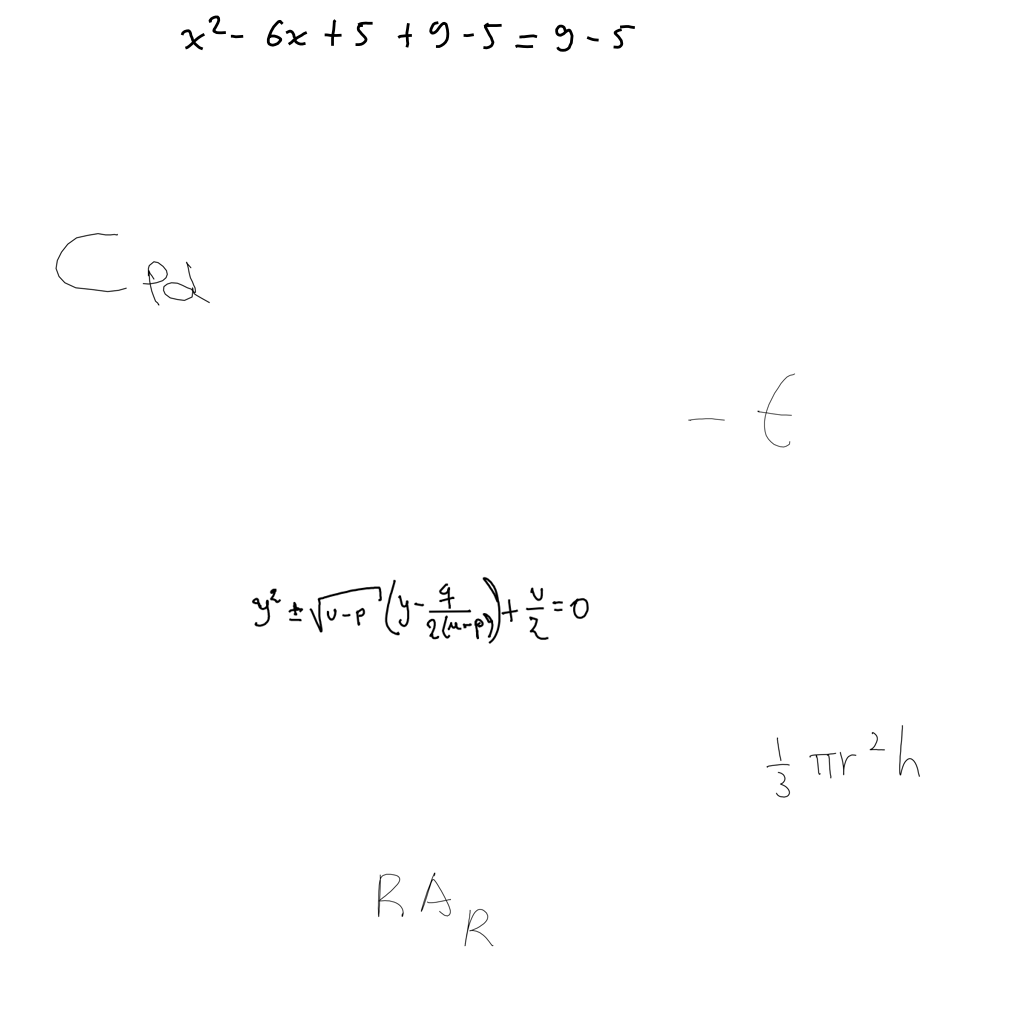 x² - 6x + 5 + 9 - 5 = 9 - 5
C_{Pd}
- t
y² ± √(u-p) (y - q/(2(u-p))) + u/2 = 0
1/3 πr²h
RA_R